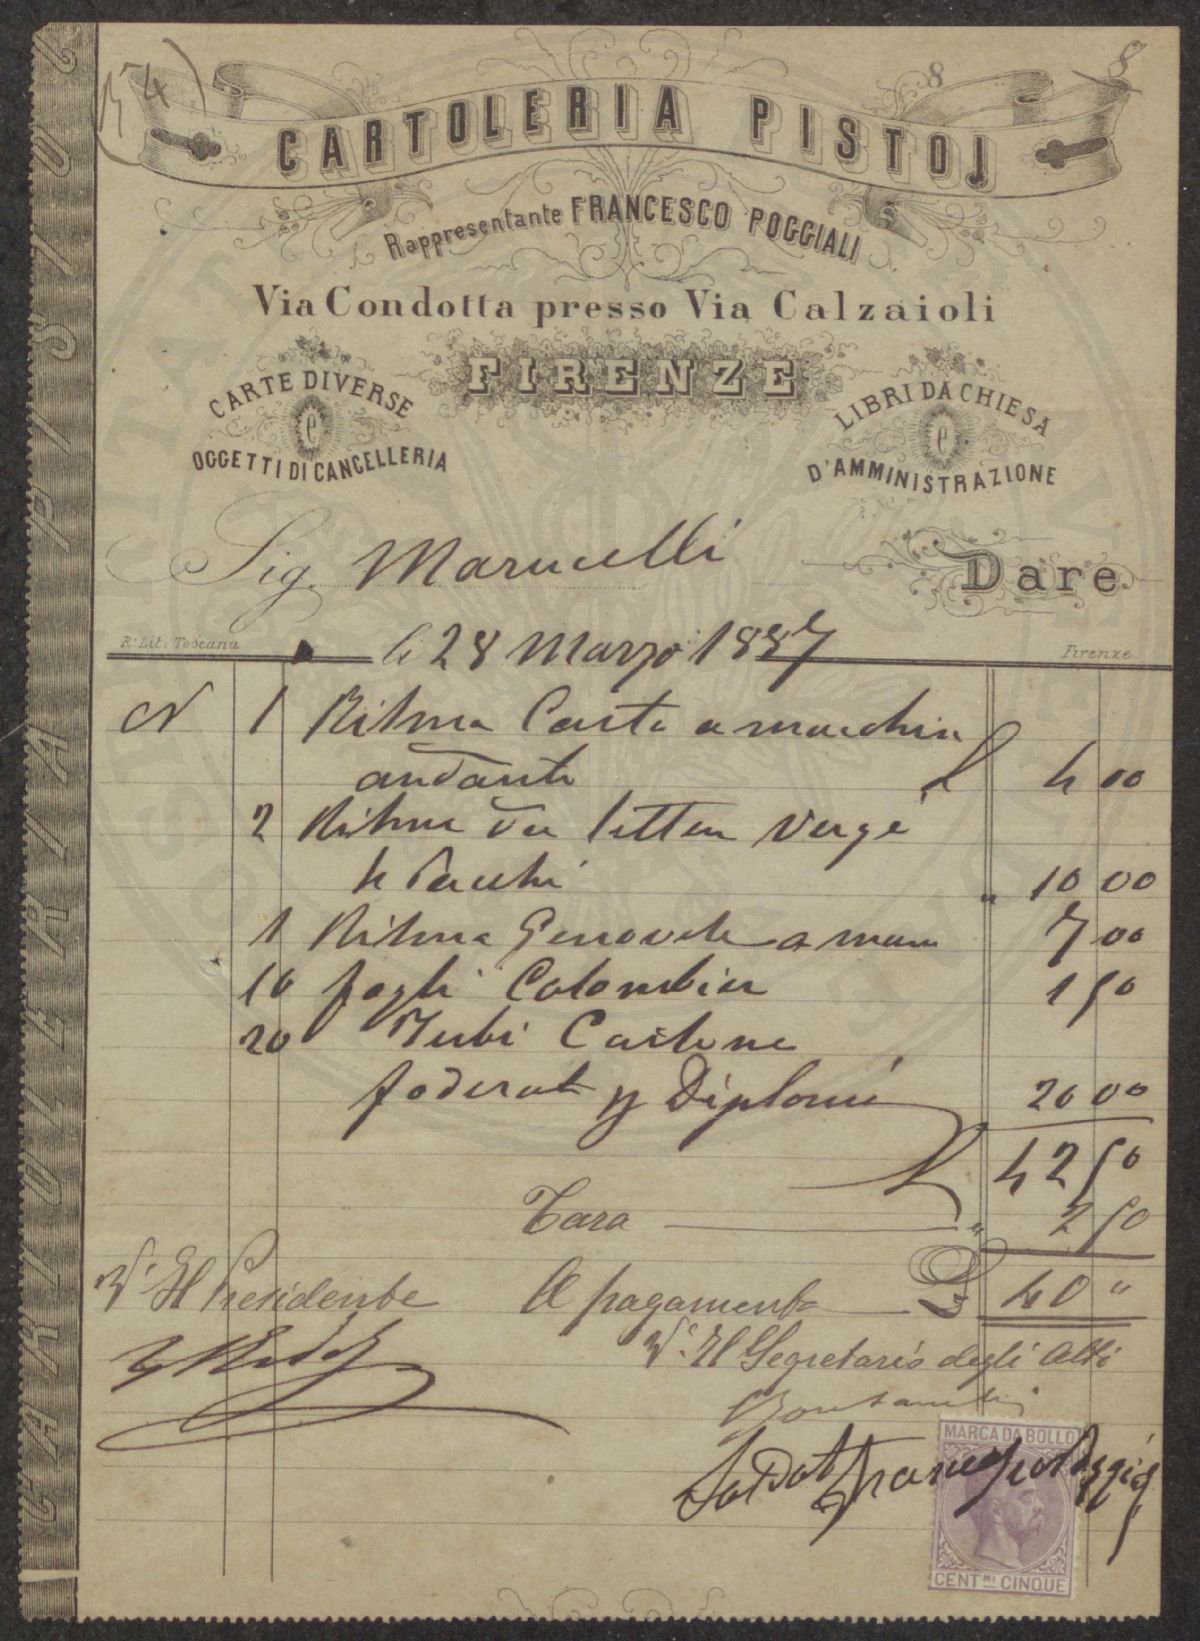 (N 4)
8
8
CARTOLERIA PISTOJ
Rappresentante FRANCESCO POGGIALI
Via Condotta presso Via Calzaioli
FIRENZE
CARTE DIVERSE
e
OGGETTI DI CANCELLERIA
LIBRI DA CHIESA
e
D'AMMINISTRAZIONE
Sig. Marucelli
Dare
R. Lit. Toscana
li 28 Marzo 1887
Firenze.
N 1 Risma Carta a macchina
andante L 4 00
2 Risme da lettere Vergé
4 Pacchi " 10 00
1 Risma Genovese a mano 7 00
10 fogli Colombier 1 50
20 Tubi Cartone
foderati p Diplomi 20 00
L 42 50
Tara " 2 50
V° Il Presidente
A pagamento L 40 "
V° Il Segretario degli Atti
Saldato Francesco Poggiali
MARCA DA BOLLO
CENT.MI CINQUE
CARTOLERIA PISTOJ